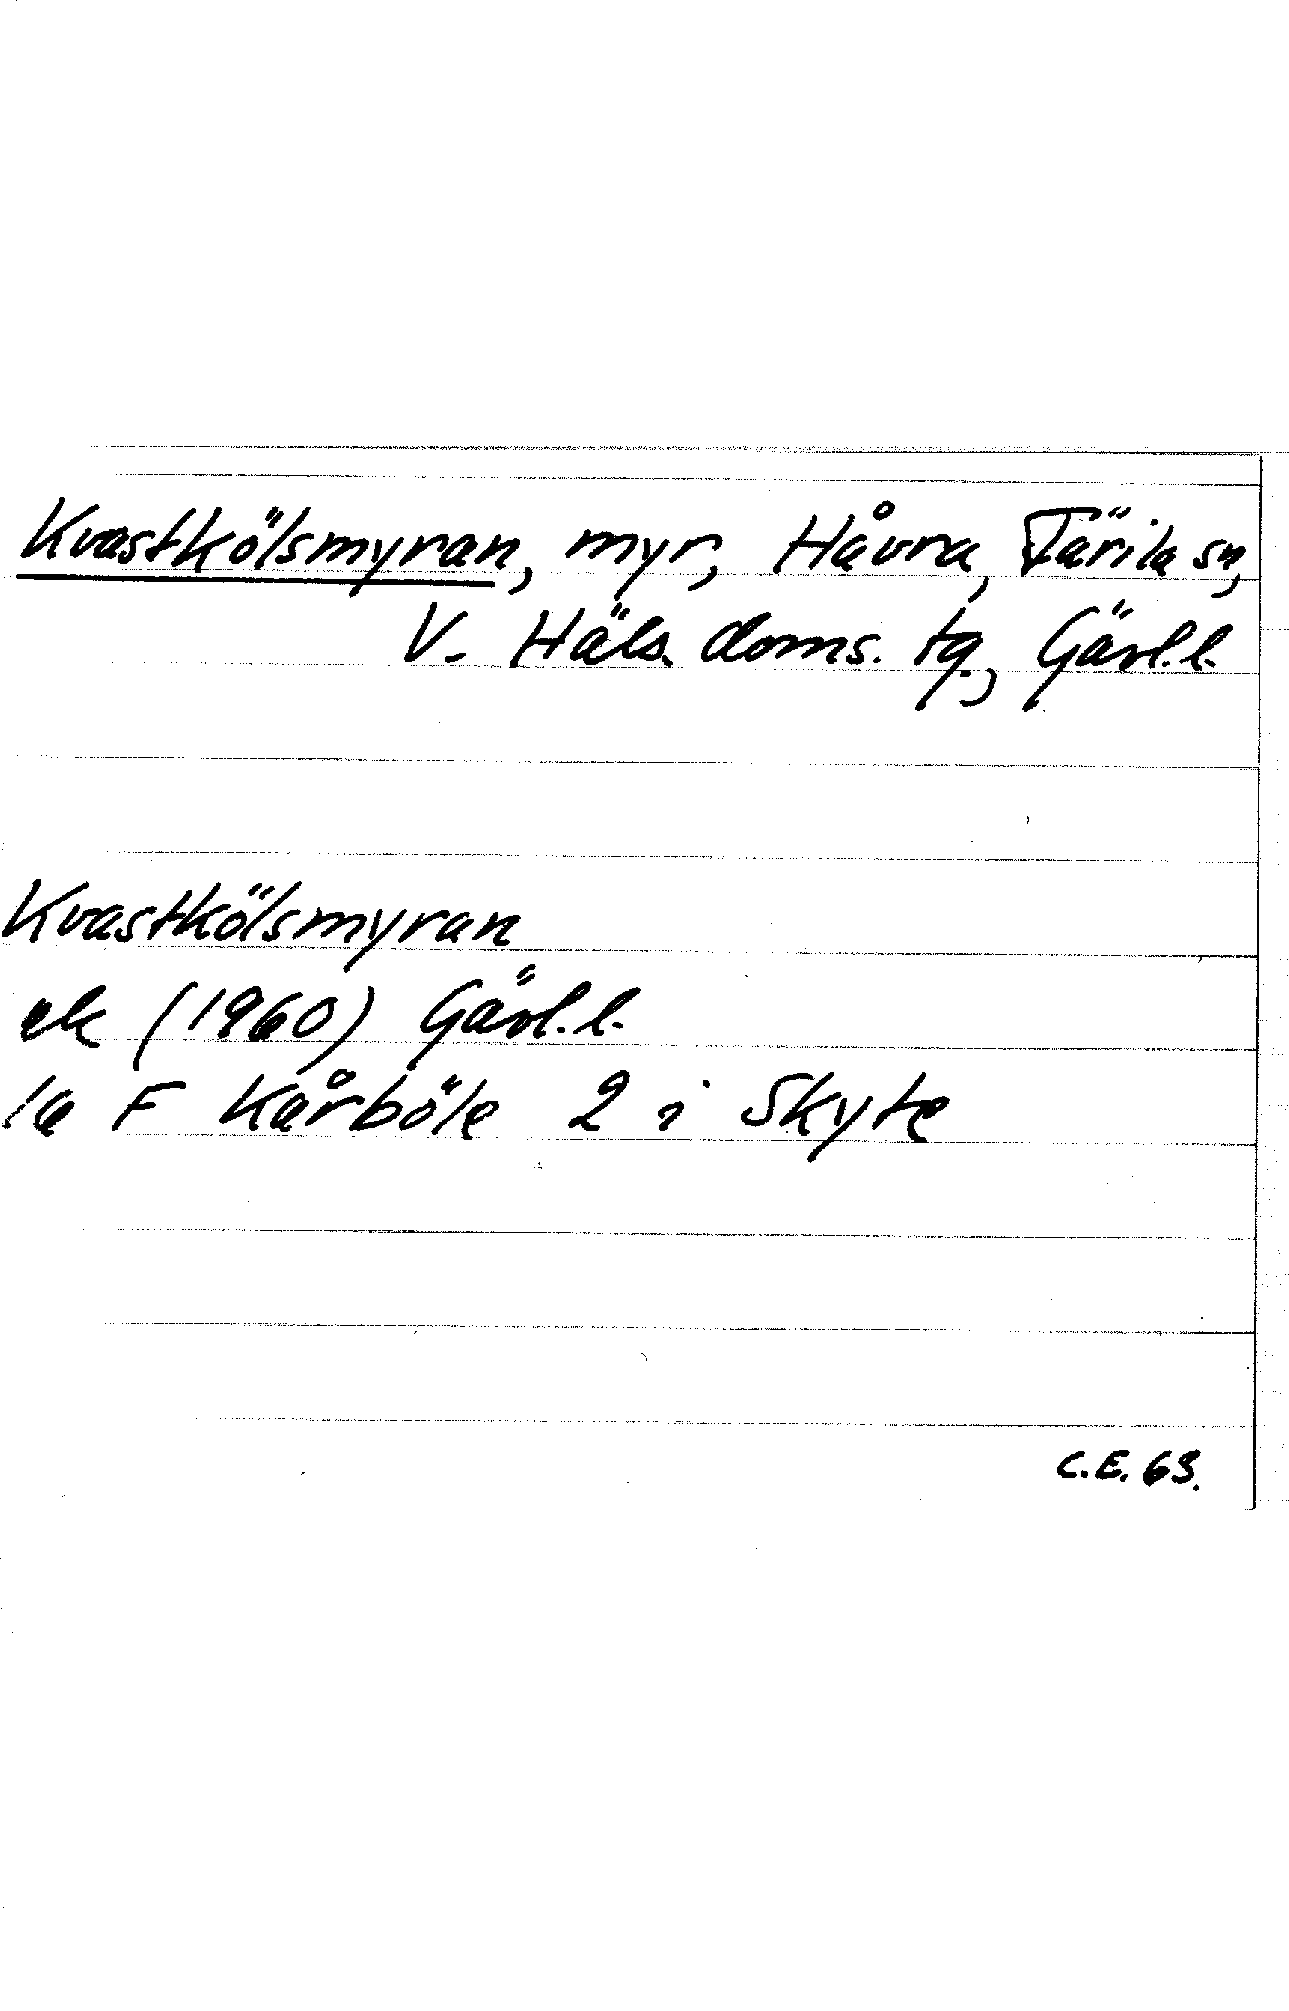 Kvastkölsmyran, myr, Håvra, Färila sn,
V. Häls. doms. tg., Gävl.l.
Kvastkölsmyran
ek (1960) Gävl.l.
la F Kårböle 2 i Skyte
C.E. 63.